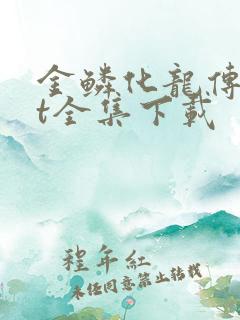 金鳞化龍傳
t全集下載
程年紅
未任同意禁止转载